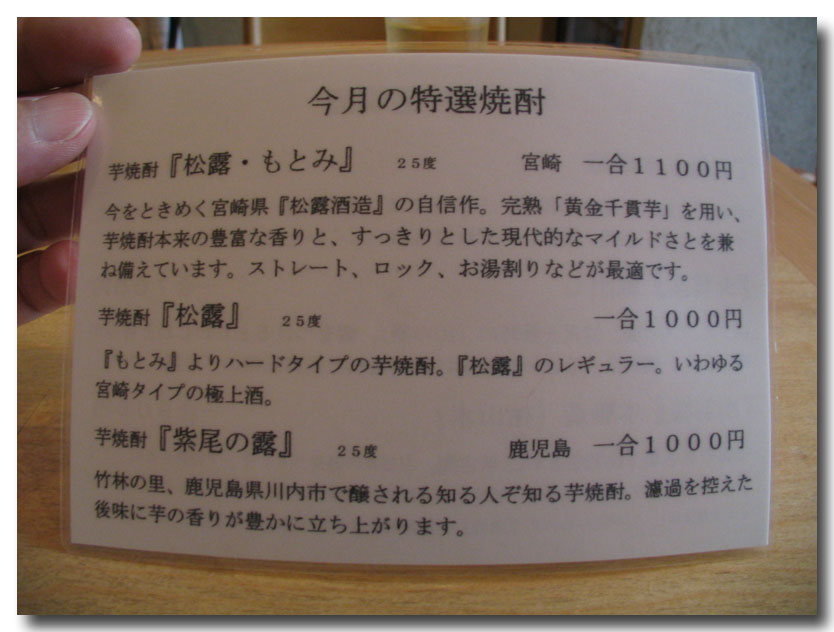 今月の特選焼酎
芋焼酎『松露・もとみ』 25度 宮崎 一合1100円
今をときめく宮崎県『松露酒造』の自信作。完熟「黄金千貫芋」を用い、
芋焼酎本来の豊富な香りと、すっきりとした現代的なマイルドさとを兼
ね備えています。ストレート、ロック、お湯割りなどが最適です。
芋焼酎『松露』 25度 一合1000円
『もとみ』よりハードタイプの芋焼酎。『松露』のレギュラー。いわゆる
宮崎タイプの極上酒。
芋焼酎『紫尾の露』 25度 鹿児島 一合1000円
竹林の里、鹿児島県川内市で醸される知る人ぞ知る芋焼酎。濾過を控えた
後味に芋の香りが豊かに立ち上がります。